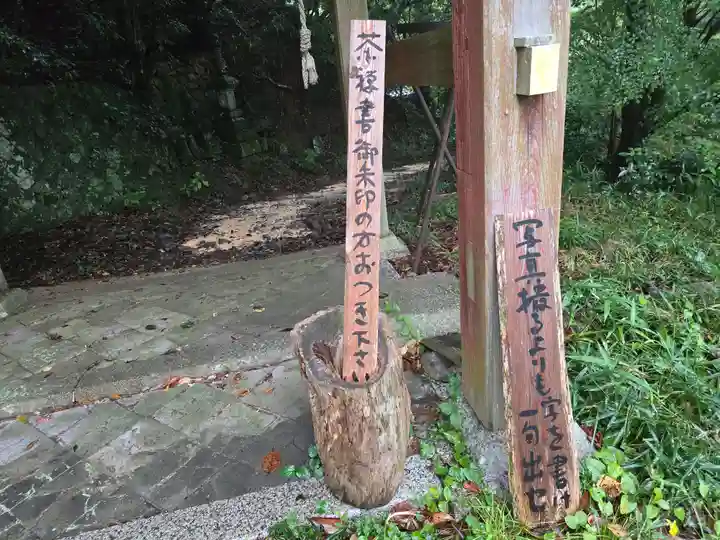 写真撮るよりも字を書け
一句出せ
茶禅書御朱印の方おつき下さい